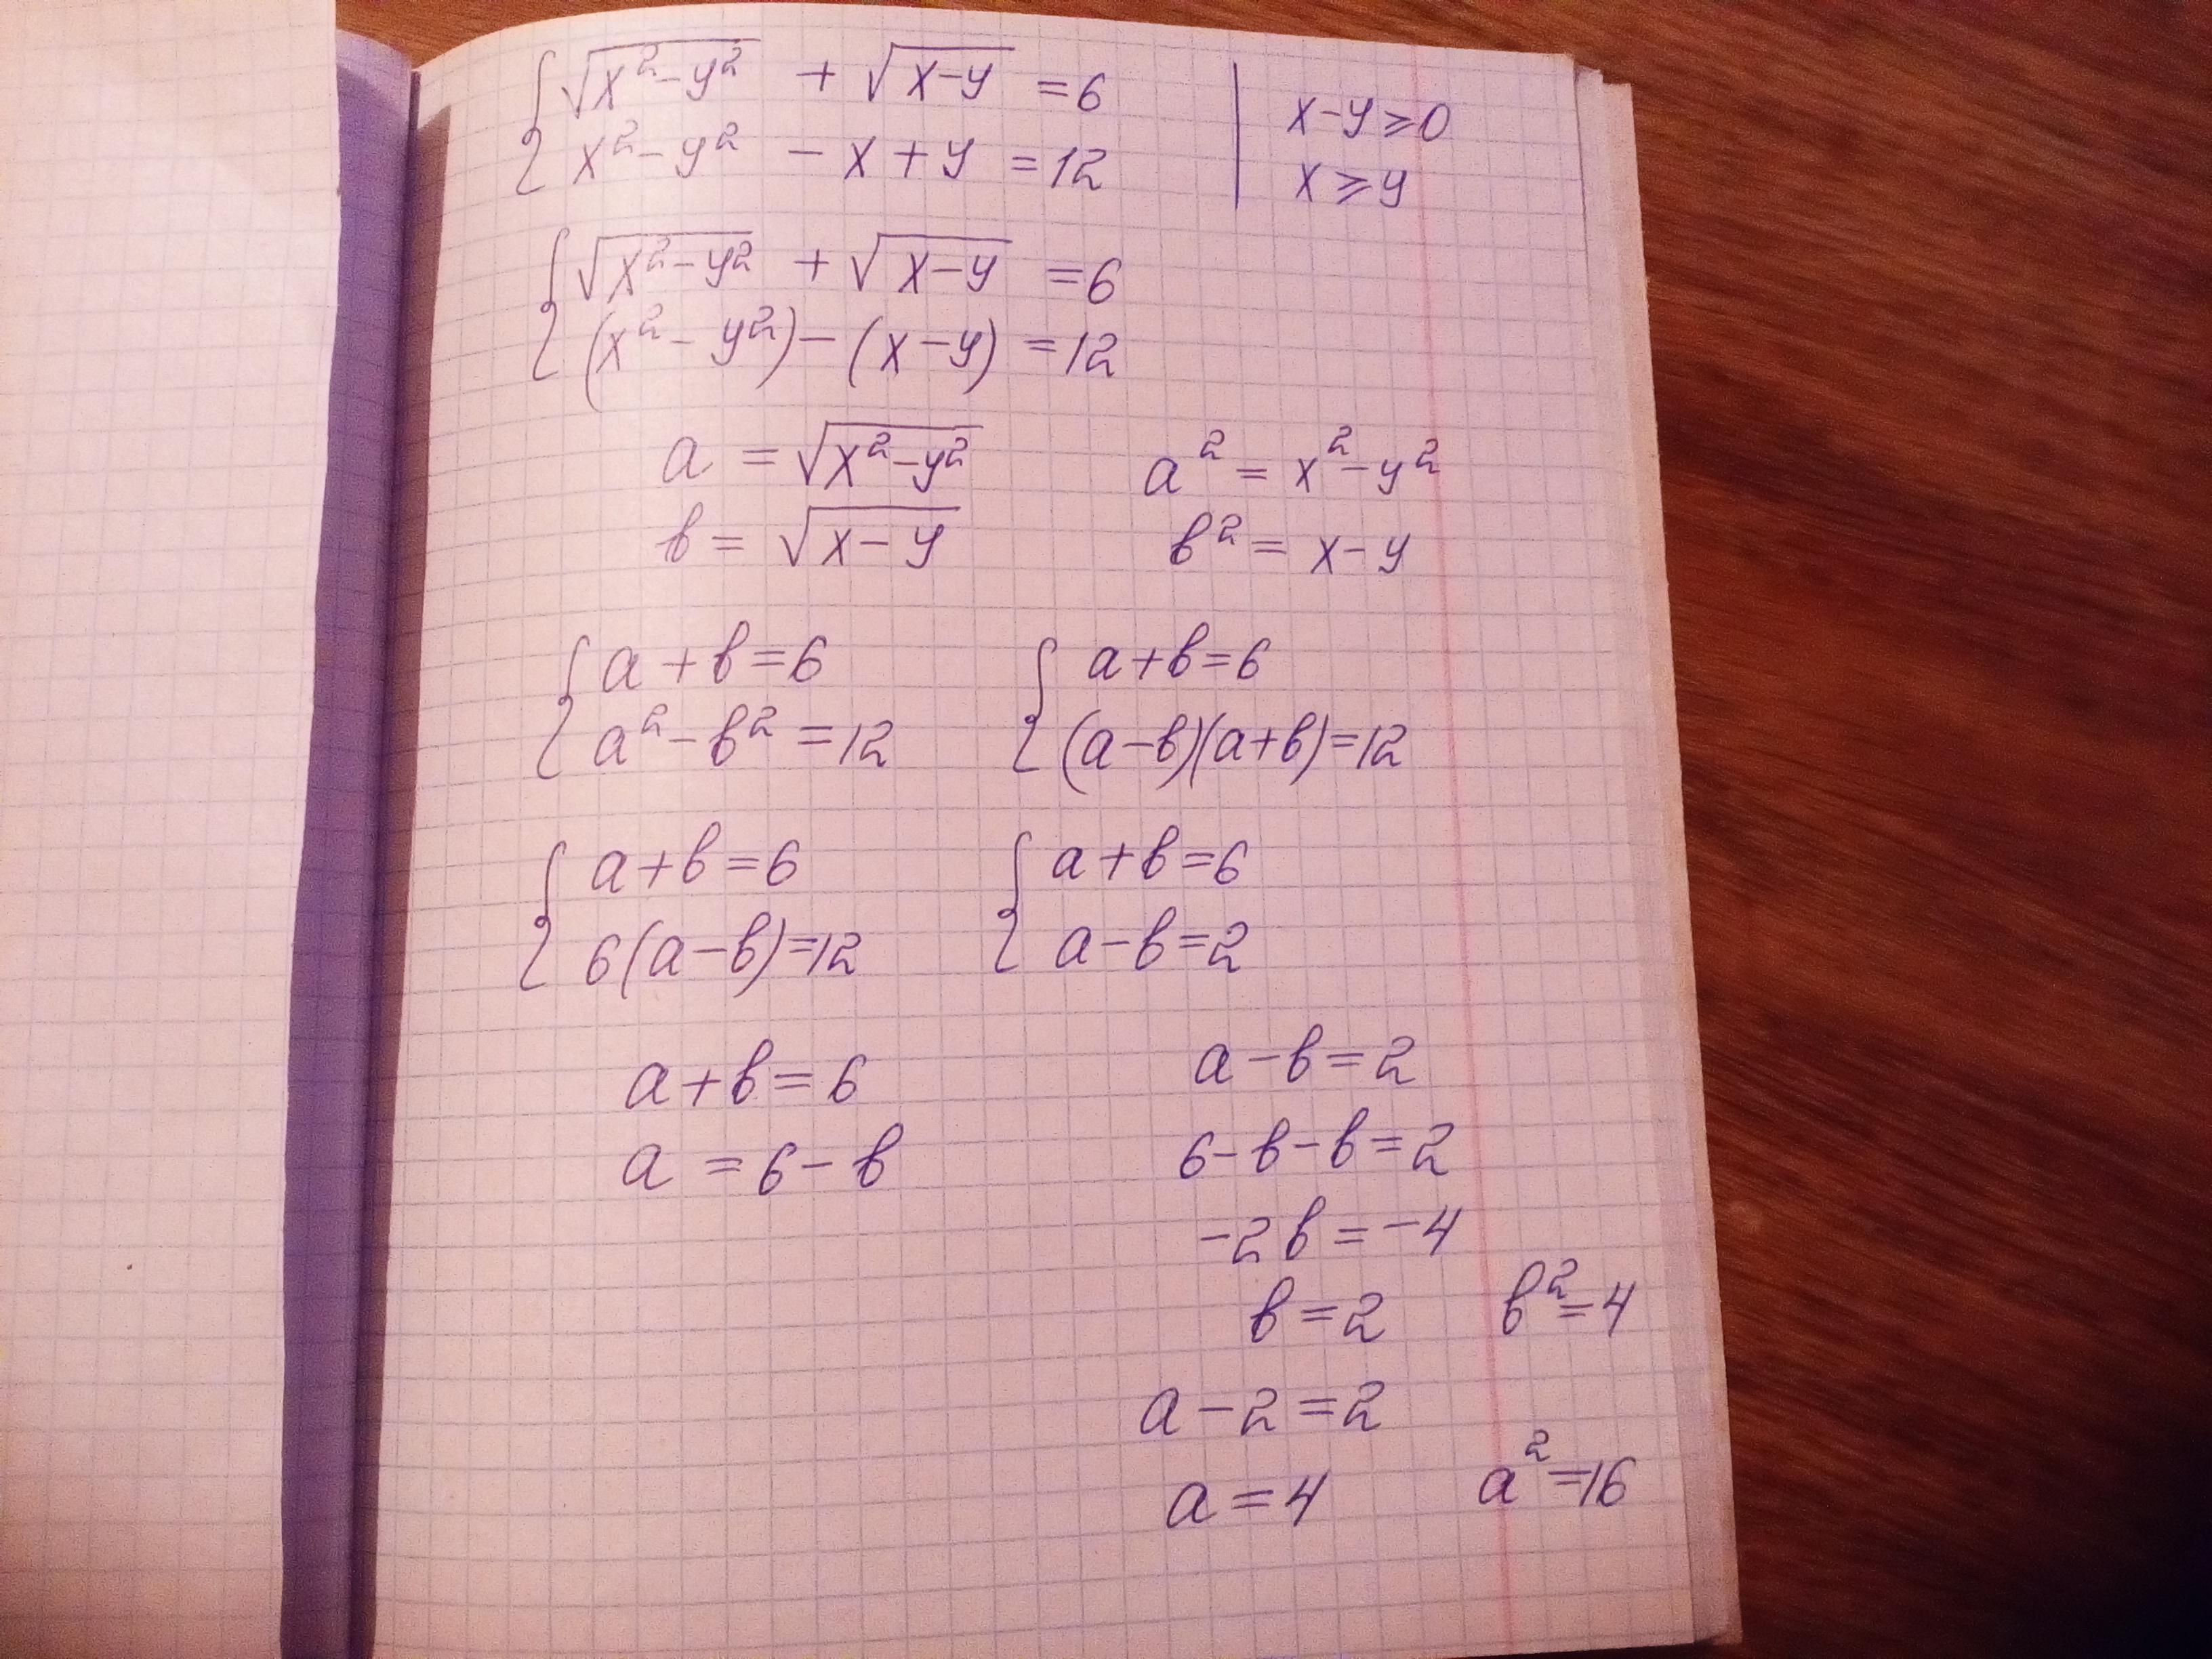 √x²-y² + √x-y = 6 | x-y⩾0
x²-y² - x + y = 12 | x⩾y
√x²-y² + √x-y = 6
(x²-y²)-(x-y) = 12
a = √x²-y² a² = x²-y²
b = √x-y b² = x-y
a+b=6 a+b=6
a²-b²=12 (a-b)(a+b)=12
a+b=6 a+b=6
6(a-b)=12 a-b=2
a+b=6 a-b=2
a = 6-b 6-b-b=2
-2b=-4
b=2 b²=4
a-2=2
a=4 a²=16